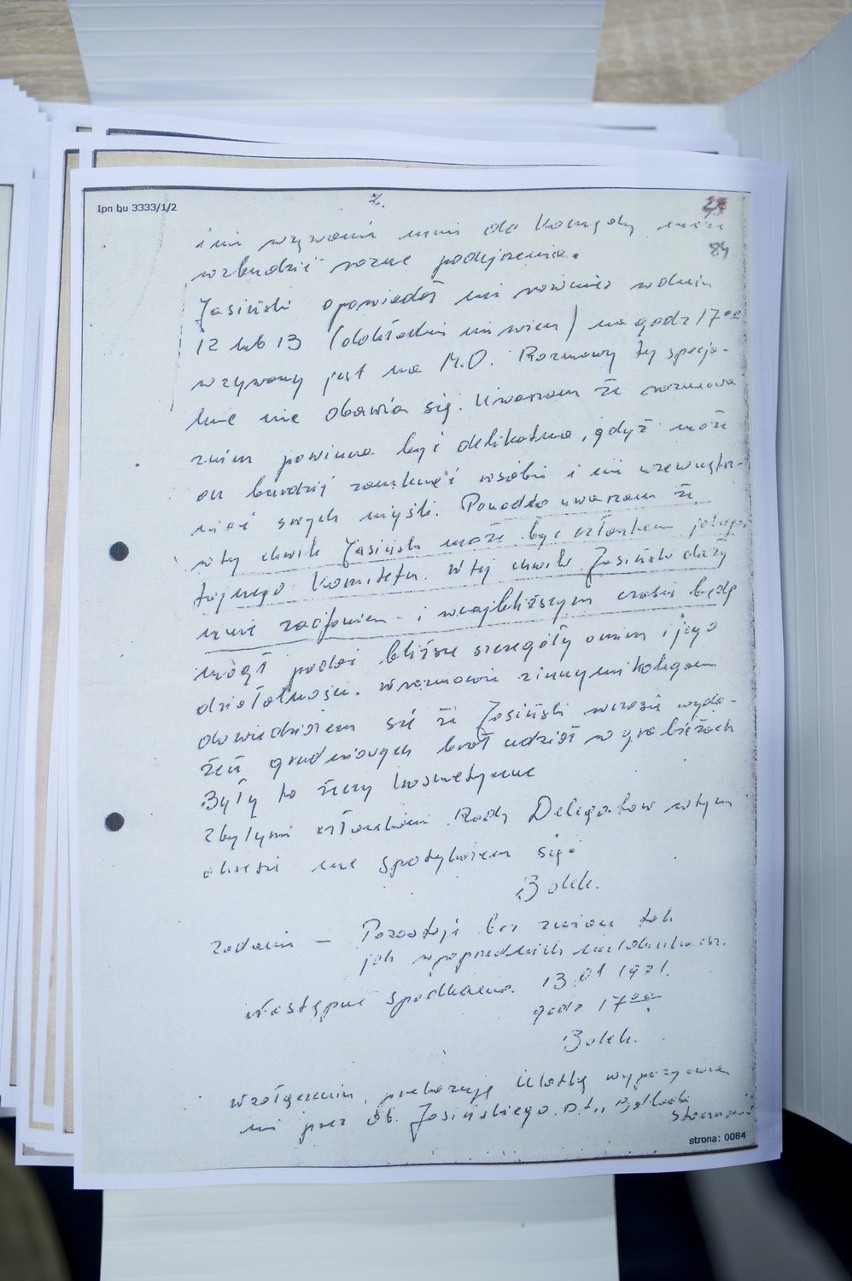 Ipn bu 3333/1/2
2.
84
i nie wzywanie mnie do Komendy
wzbudzić rózne podejrzenia.
Jasiński opowiedoł mi również wdniu
12 lub 13 (dokładnie nie wiem) na godz 17oo
wzywany jest na M.O. Rozmowy tej specja-
lnie nie obawia się. Uwarzam że rozmowa
znim powinna być delikatna, gdyż może
on bardziej zamknąć wsobie i nie uzewnętrz-
niać swych myśli. Ponadto uwarzam że
wtej chwili Jasiński może być członkem jakiegoś
tajnego Komitetu. W tej chwili Jasiński daży
mnie zaufaniem i wnajbliższym czasie będę
mógł podać bliższe szczegóły onim i jego
działalności. Wrozmowie zinnymi kolegami
dowiedziałem się że Jasiński wczasie wyda-
żeń grudniowych brał udział w grabieżach
Były to żeczy kosmetyczne
zbyłymi członkami Rady Delegatów wtym
okresie nie spotykałem się.
Bolek.
Zadanie – Pozostaje bez zmian tak
jak wpoprzednich
Następne spodkanie 13 01 1971.
godz 17oo
Bolek.
Wzałączeniu przekazuję Ulotkę
mi przez Ob. Jasińskiego.
strona: 0084